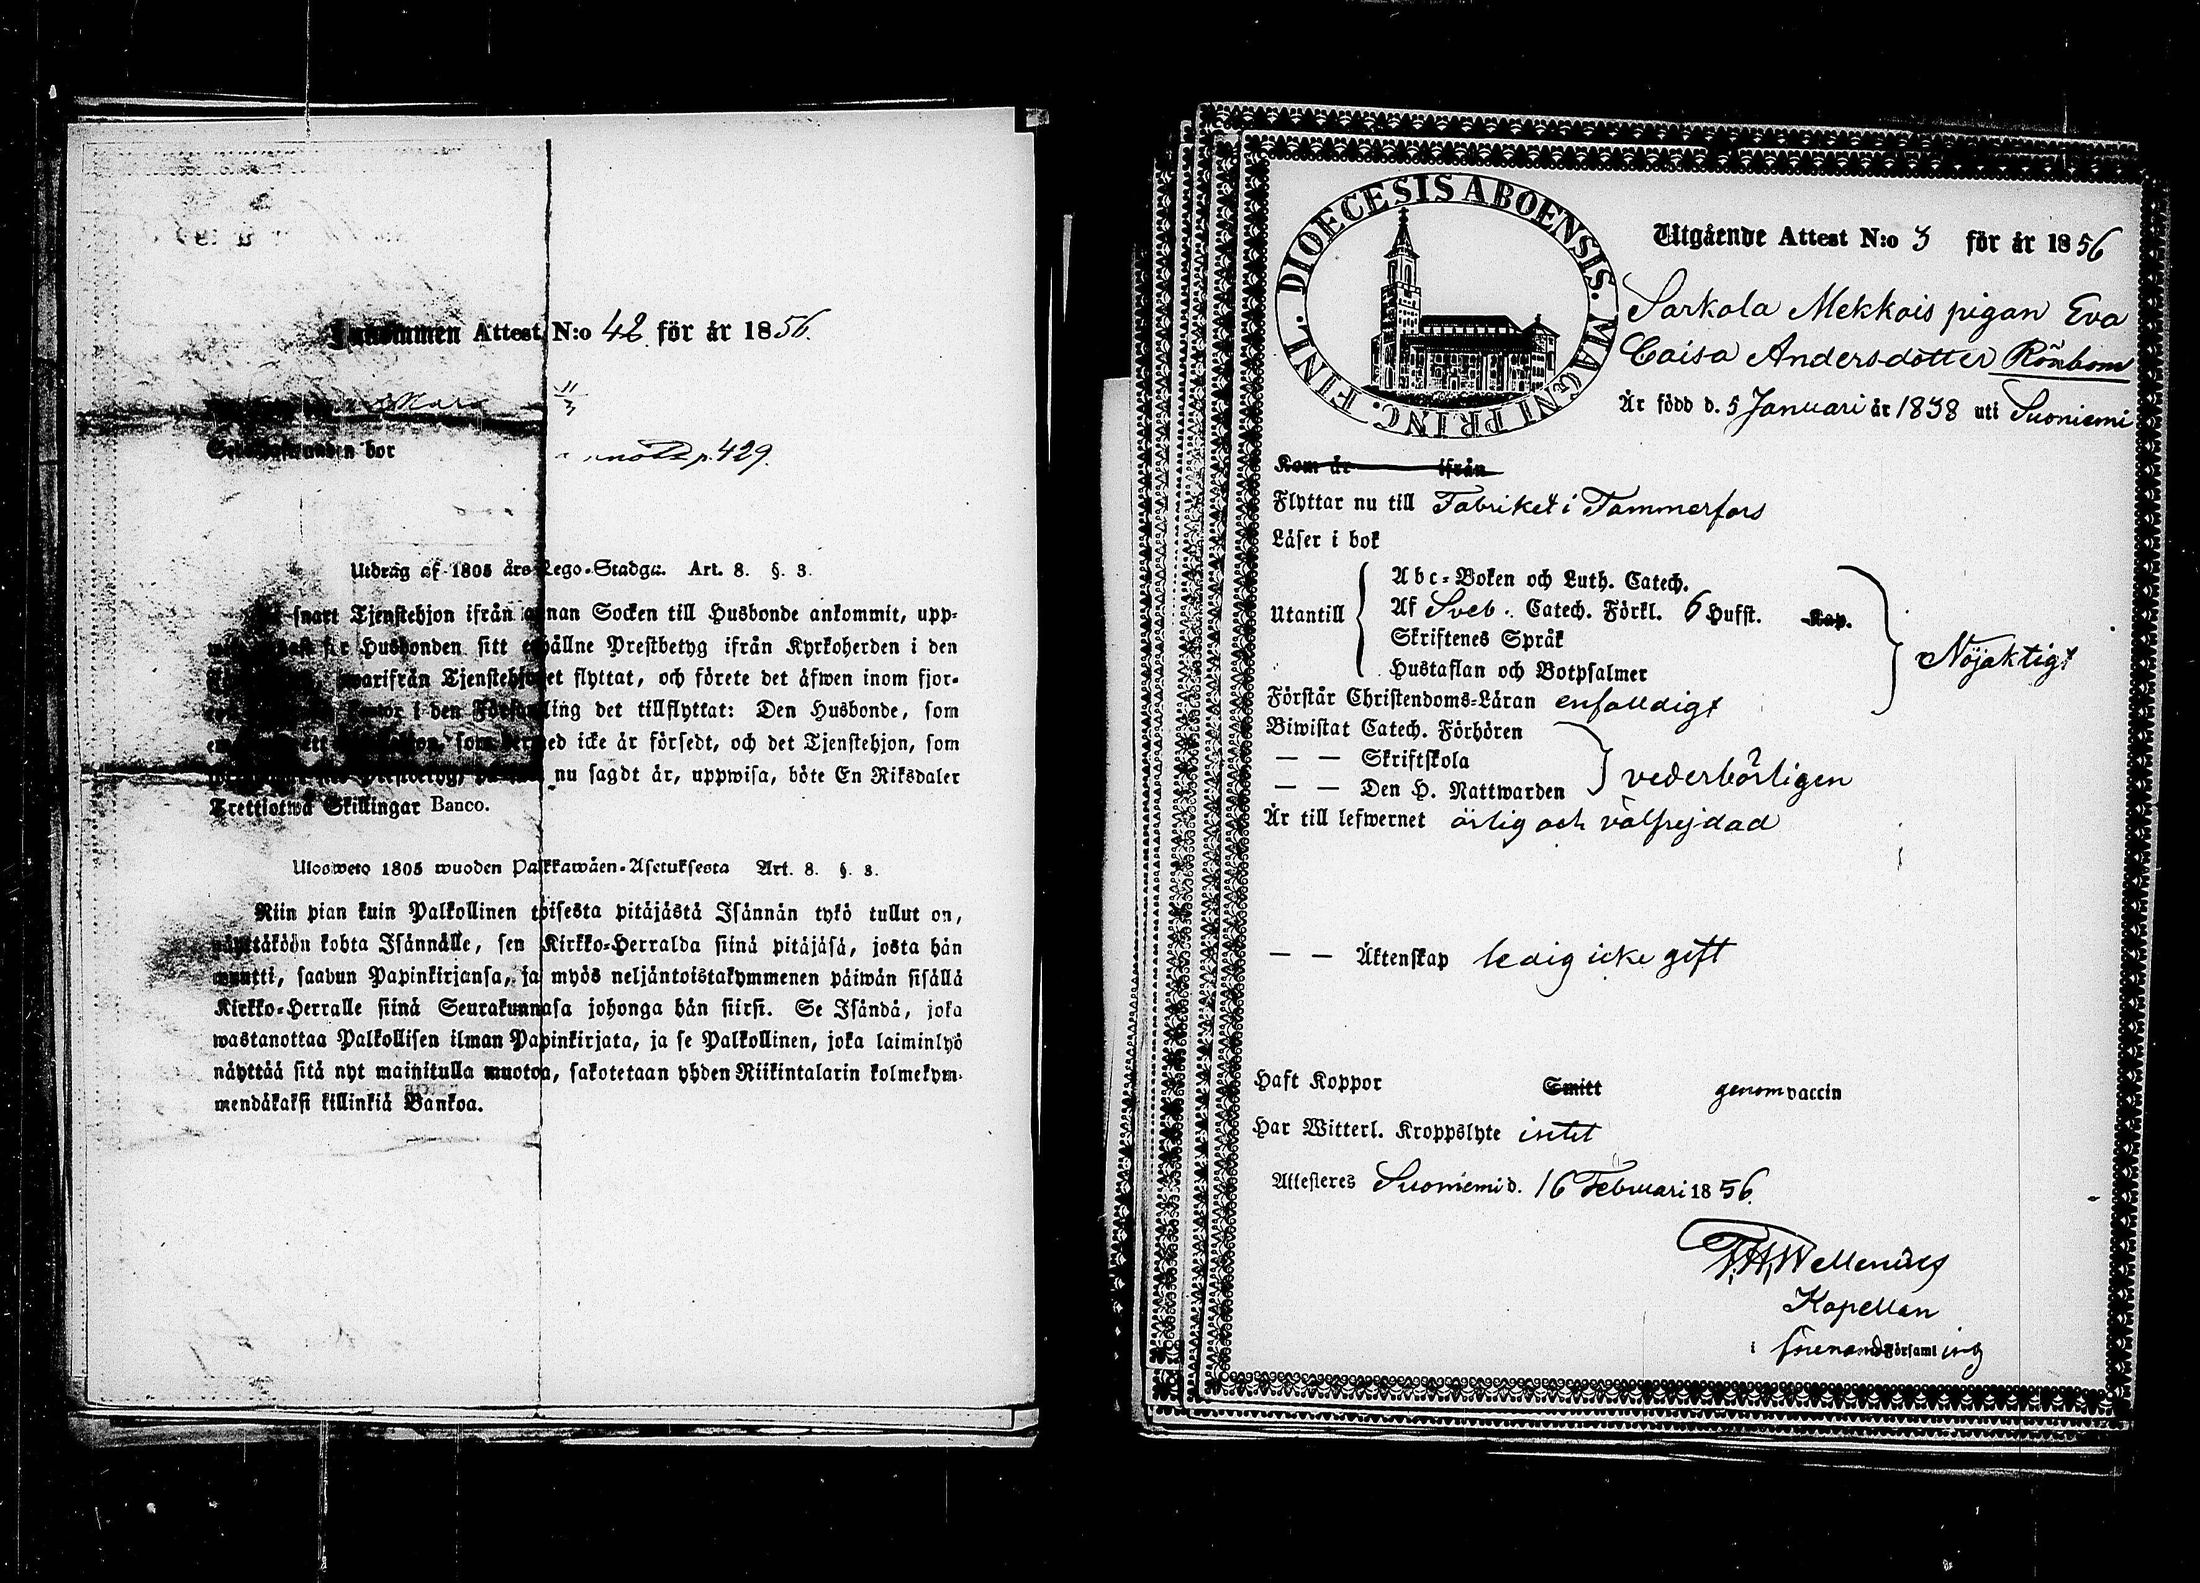 Inkommen Attest N:o 42. för år 1856.
Mars 11/3
bor p. 429.
Utdrag af 1805 års Lego-Stadga. Art. 8. §. 3.
snart Tjenstehjon ifrån annan Socken till Husbonde ankommit, upp-
Husbonden sitt erhållne Prestbetyg ifrån Kyrkoherden i den
hwarifrån Tjenstehjonet flyttat, och förete det äfwen inom fjor-
i den Församling det tillflyttat: Den Husbonde, som
som dermed icke är försedt, och det Tjenstehjon, som
nu sagdt är, uppwisa, böte En Riksdaler
Trettiotwå Skillingar Banco.
Ulosweto 1805 wuoden Palkkawäen-Asetuksesta Art. 8. §. 3.
Niin pian kuin Palkollinen toisesta pitäjästä Isännän tykö tullut on,
näyttäköön kohta Isännälle, sen Kirkko-Herralda siinä pitäjäsä, josta hän
muutti, saadun Papinkirjansa, ja myös neljäntoistakymmenen päiwän sisällä
Kirkko-Herralle siinä Seurakunnasa johonga hän siirsi. Se Isändä, joka
wastanottaa Palkollisen ilman Papinkirjata, ja se Palkollinen, joka laiminlyö
näyttää sitä nyt mainitulla muotoa, sakotetaan yhden Riikintalarin kolmekym-
mendäkaksi killinkiä Bankoa.
DIOECESIS ABOENSIS. MAGNI PRINC. FINL.
Utgående Attest N:o 3 för år 1856
Sarkola Mekkois pigan Eva
Caisa Andersdotter Rönbom
Är född d. 5 Januari år 1838 uti Suoniemi
Kom år ifrån
Flyttar nu till Fabriket i Tammerfors
Läser i bok
Abc-Boken och Luth. Catech.
Utantill Af Sveb. Catech. Förkl. 6 Hufst. Kap.
Skriftenes Språk
Hustaflan och Botpsalmer
Nöjaktigt
Förstår Christendoms-Läran enfaldigt
Biwistat Catech. Förhören
— — Skriftskola
— — Den H. Nattwarden
vederbörligen
Är till lefwernet ärlig och välfrejdad
— — Äktenskap ledig icke gift
Haft Koppor Smitt genom vaccin
Har Witterl. Kroppslyte intet
Attesteres Suoniemi d. 16 Februari 1856.
Kapellan
i församling